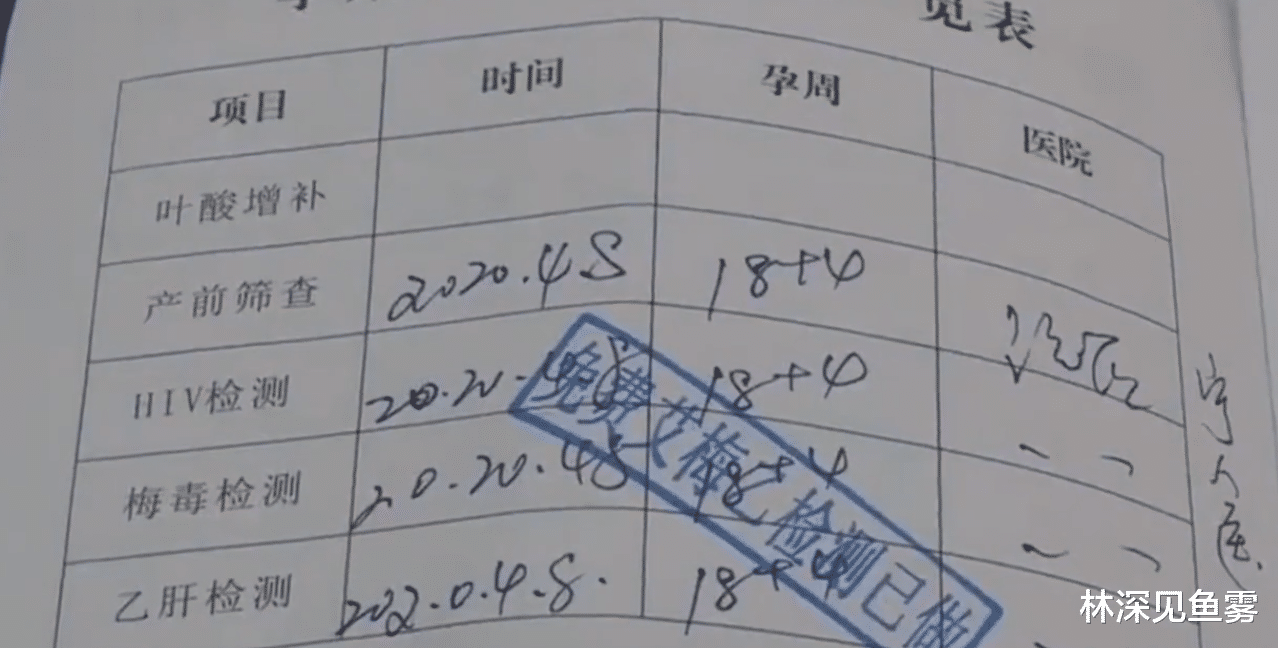 览表
项目 时间 孕周 医院
叶酸增补
产前筛查 2020.4.8 18+4
HIV检测 2020.4.8 18+4
梅毒检测 20.20.4.8 18+4
乙肝检测 202.0.4.8. 18+4
免费艾梅乙检测已做
人医
林深见鱼雾